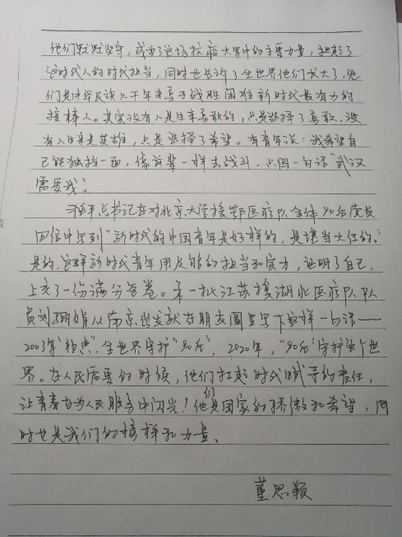 他们默默坚守，成为了这场抗疫大军中的主要力量，担起了
这时代人的时代担当，同时也告诉了全世界他们长大了，他
们是中华民族几千年来勇于战胜困难新时代最有力的
接棒人。其实没有人是生来勇敢的，只是选择了勇敢，没
有人生来是英雄，只是选择了希望。有青年说：我希望自
己能独挡一面，像前辈一样去战斗，只因一句话"武汉
需要我"。
习近平总书记在对北京大学援鄂医疗队全体90后党员
回信中写到"新时代的中国青年是好样的，是堪当大任的。"
是的，这群新时代青年用足够的担当和实力，证明了自己，
上交了一份满分答卷。第一批江苏援湖北医疗队队
员刘 从南京出发就在朋友圈里写下这样一句话——
2003年"非典"，全世界守护"90后"，2020年，"90后"守护全世
界。在人民需要的时候，他们扛起时代赋予的责任，
让青春在为人民服务中闪光！他们是国家的骄傲和希望，同
时也是我们的榜样和力量。
董思颖